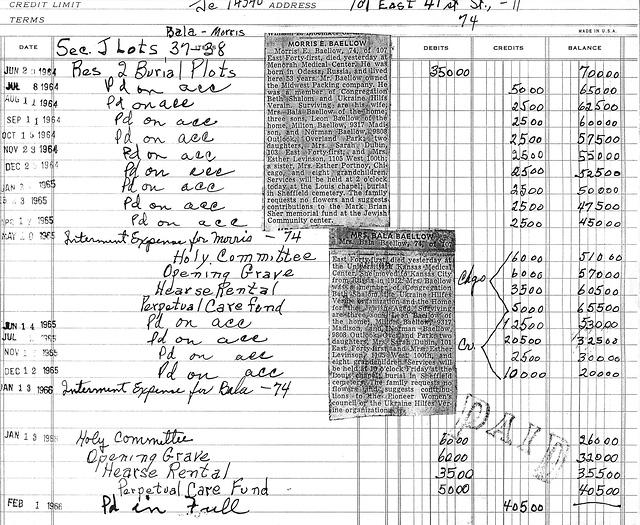 CREDIT LIMIT
ADDRESS 107 East 41st St., -11
TERMS 74
Bala - Morris
MADE IN U.S.A.
DATE DEBITS CREDITS BALANCE
Sec. J Lots 37-38
JUN 2 1964 Res 2 Burial Plots 35000 70000
JUL 8 1964 Pd on acc 5000 65000
AUG 1 1964 Pd on acc 2500 62500
SEP 1 1 1964 Pd on acc 2500 60000
OCT 1 1964 Pd on acc 2500 57500
NOV 23 1964 Pd on acc 2500 55000
DEC 2 1964 Pd on acc 2500 52500
JAN 1965 Pd on acc 2500 50000
3 1965 Pd on acc 2500 47500
APR 1 1965 Pd on acc 2500 45000
MAY 1965 Interment Expense for Morris - 74
Holy Committee 6000 51000
Opening Grave Chgs 6000 57000
Hearse Rental 3500 60500
Perpetual Care Fund 5000 65500
JUN 1 4 1965 Pd on acc 12500 53000
JUL 1965 Pd on acc Cr. 20500 32500
NOV 1965 Pd on acc 2500 30000
DEC 1 2 1965 Pd on acc 10000 20000
JAN 1 3 1966 Interment Expense for Bala - 74
PAID
JAN 1 3 1966 Holy Committee 6000 26000
Opening Grave 6000 32000
Hearse Rental 3500 35500
Perpetual Care Fund 5000 40500
FEB 1 1966 Pd in Full 40500
MORRIS E. BAELLOW
Morris E. Baellow, 74, of 107
East Forty-first, died yesterday at
Menorah Medical Center. He was
born in Odessa, Russia, and lived
here 53 years. Mr. Baellow owned
the Midwest Packing company. He
was a member of Congregation
Beth Shalom and Ukraine Hilfs
Verein. Surviving are his wife,
Mrs. Bala Baellow of the home;
three sons, Leon Baellow of the
home, Milton Baellow, 9317 Madi
son, and Norman Baellow, 9808
Outlook, Overland Park; two
daughters, Mrs. Sarah Dubin,
103 East Forty-first, and Mrs.
Esther Levinson, 1105 West 100th;
a sister, Mrs. Esther Portnoy, Chi-
cago, and eight grandchildren.
Services will be held at 2 o'clock
today at the Louis chapel; burial
in Sheffield cemetery. The family
requests no flowers and suggests
contributions to the Mark Brian
Sher memorial fund at the Jewish
Community center.
MRS. BALA BAELLOW
Mrs. Bala Baellow, 74, of 107
East Forty-first, died yesterday at
the University of Kansas Medical
Center. She moved to Kansas City
from in 1912. Mrs. Baellow
was a member of Congregation
Beth Shalom, the Ukraine Hilfs
Leon Baellow of
the home, Milton Baellow, 9317
Madison, and Norman Baellow,
9808 Outlook, Overland Park; two
daughters, Mrs. Sarah Dubin, 103
East Forty-first and Mrs. Esther
Levinson, 1105 West 100th, and
eight grandchildren. Services will
be held at 10 o'clock Friday at the
Louis chapel; burial in Sheffield
cemetery. The family requests no
flowers, and suggests contribu-
tions to the Pioneer Women's
council or the Ukraine Hilfs Ver-
eine organization.